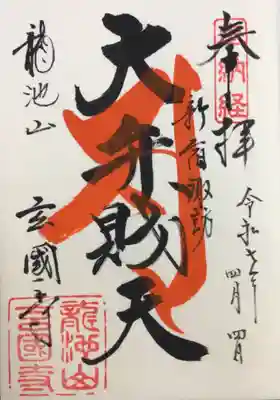 奉拝
納経
令和七年四月四日
新宿諏訪
大弁財天
龍池山
玄國寺
龍池山
玄國寺